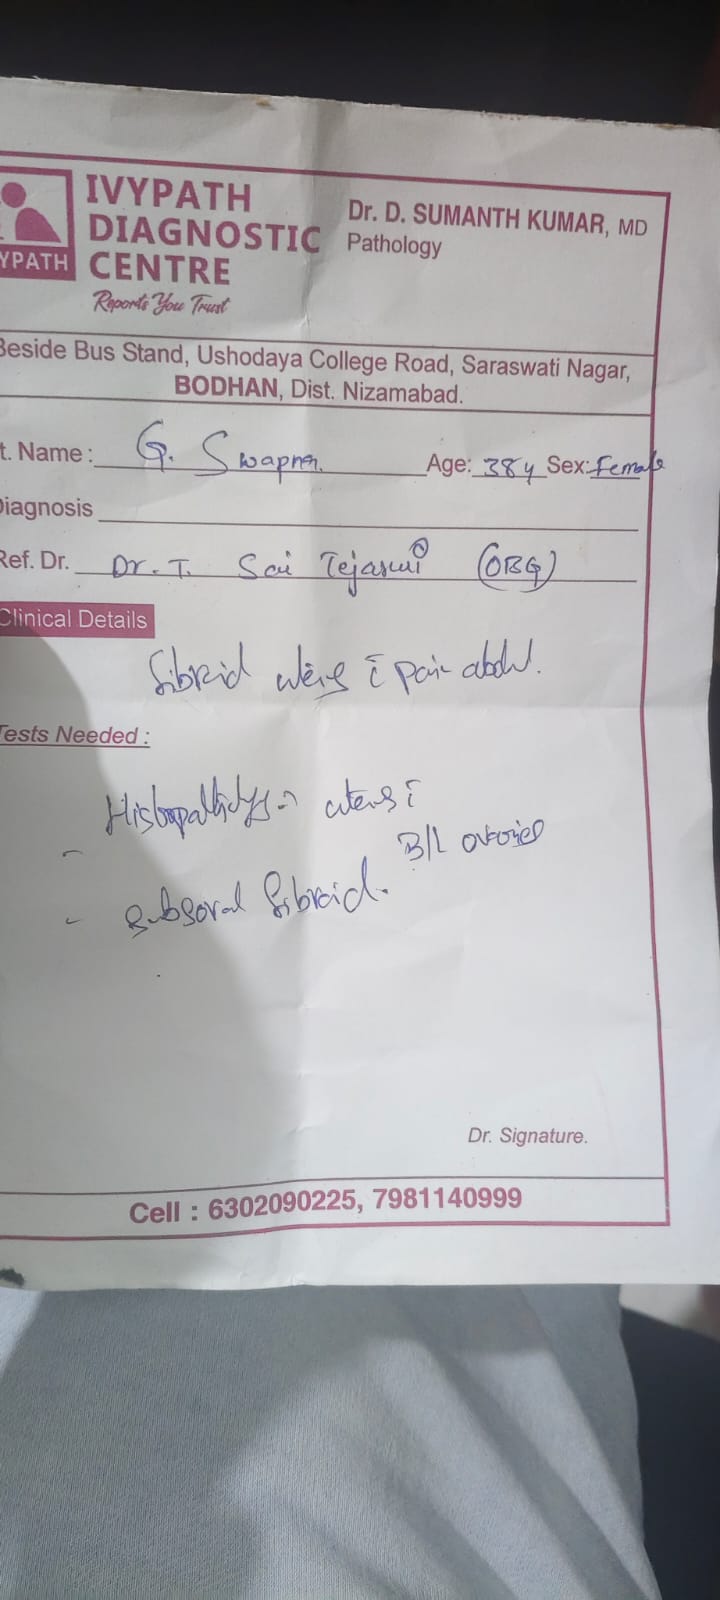 IVYPATH
DIAGNOSTIC
CENTRE
Reports You Trust
YPATH
Dr. D. SUMANTH KUMAR, MD
Pathology
Beside Bus Stand, Ushodaya College Road, Saraswati Nagar,
BODHAN, Dist. Nizamabad.
t. Name : G. Swapna. Age: 38y Sex: Female
Diagnosis
Ref. Dr. Dr. T. Sai Tejaswi (OBG)
Clinical Details
fibroid uterus c̄ pain abdd.
Tests Needed :
- Histopathology → uterus c̄
B/L ovaries
- subseral fibroid.
Dr. Signature.
Cell : 6302090225, 7981140999